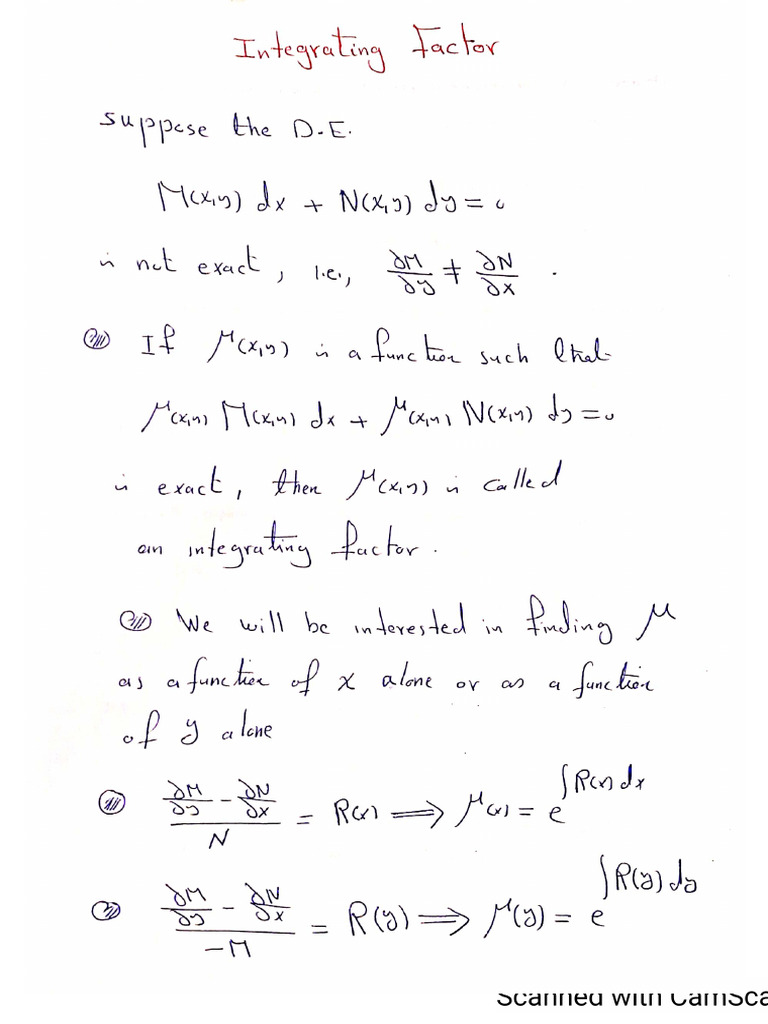 Integrating Factor
Suppose the D.E.
M(x,y) dx + N(x,y) dy = 0
is not exact, i.e., ∂M/∂y ≠ ∂N/∂x .
If μ(x,y) is a function such that
μ(x,y) M(x,y) dx + μ(x,y) N(x,y) dy = 0
is exact, then μ(x,y) is called
an integrating factor.
We will be interested in finding μ
as a function of x alone or as a function
of y alone
(∂M/∂y - ∂N/∂x)/N = R(x) ⟹ μ(x) = e^∫R(x) dx
(∂M/∂y - ∂N/∂x)/-M = R(y) ⟹ μ(y) = e^∫R(y) dy
Scanned with CamSca